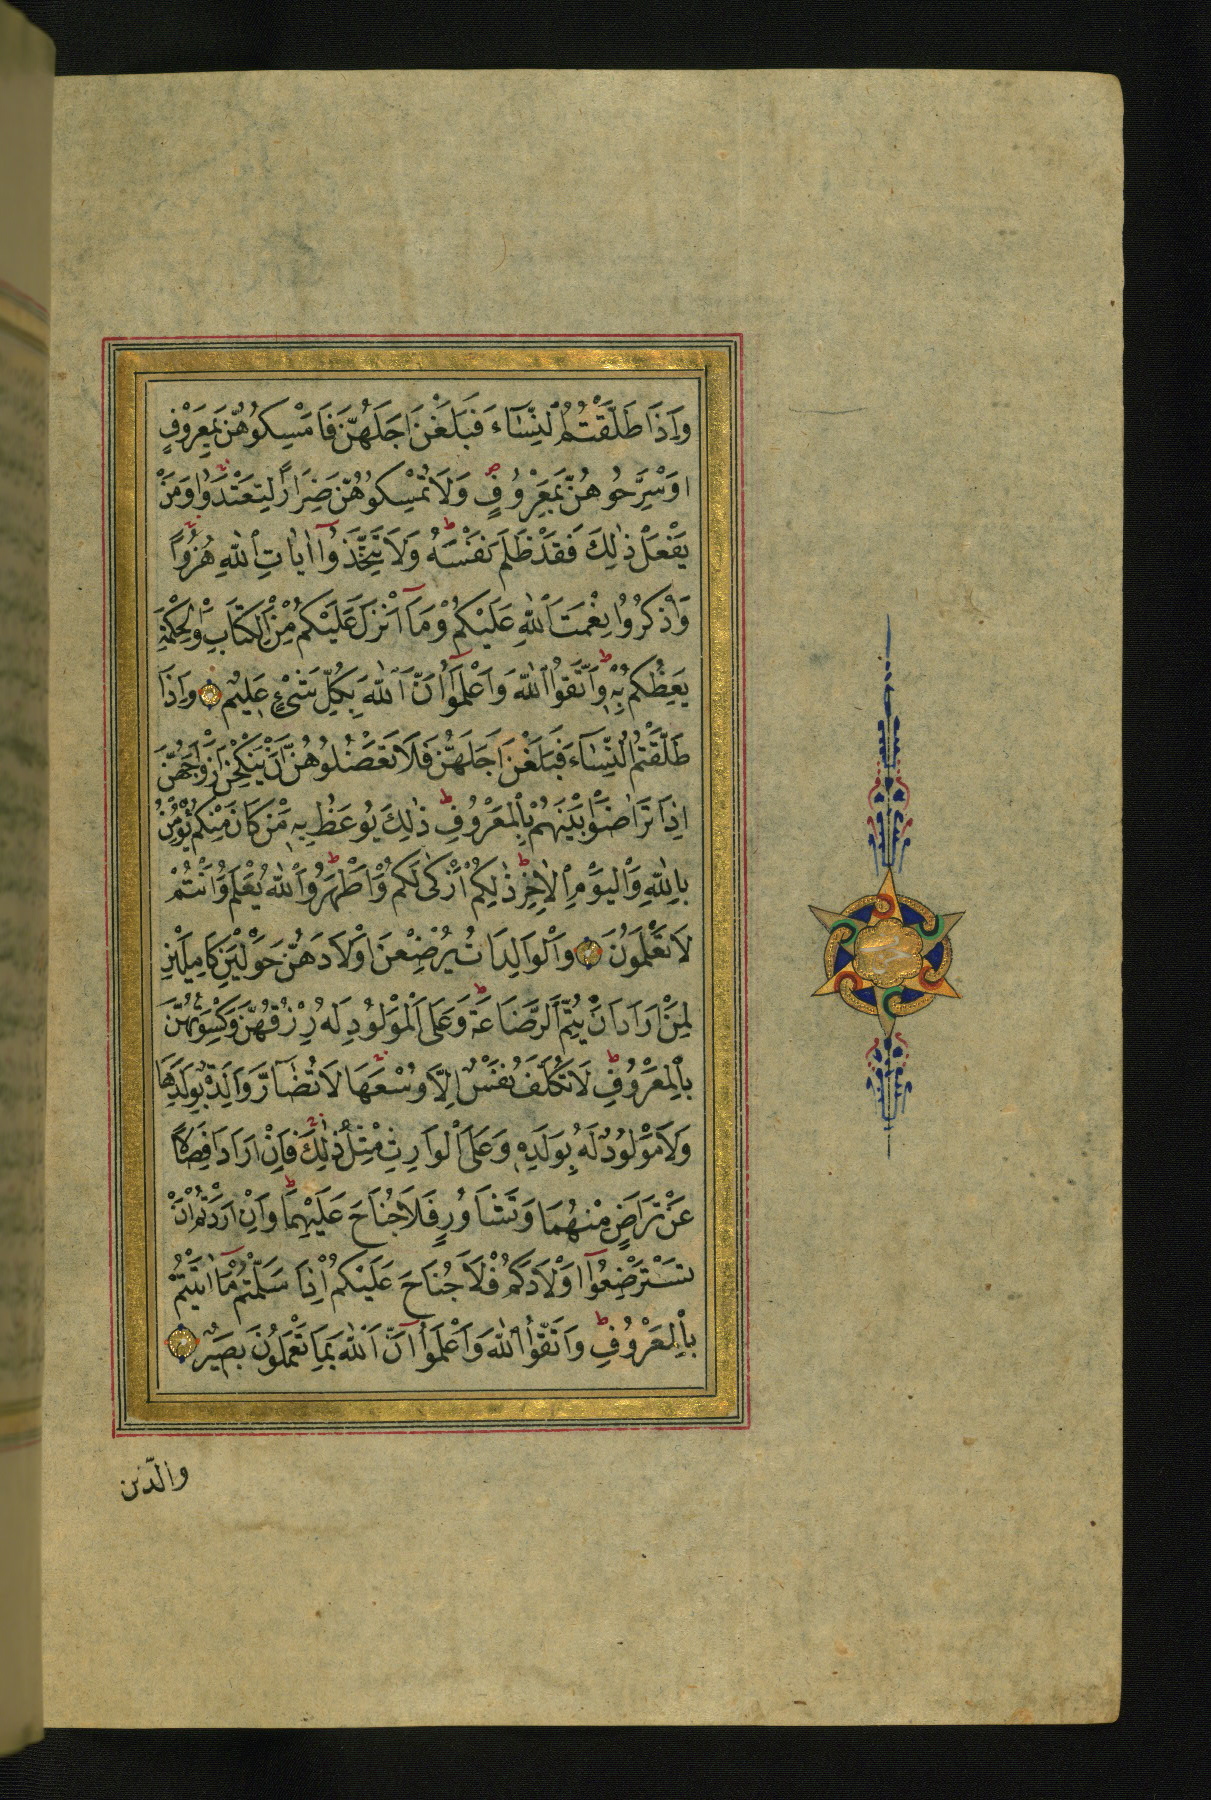 وَاِذَا طَلَّقْتُمُ النِّسَآءَ فَبَلَغْنَ اَجَلَهُنَّ فَاَمْسِكُوهُنَّ بِمَعْرُوفٍ
اَوْ سَرِّحُوهُنَّ بِمَعْرُوفٍ وَلَا تُمْسِكُوهُنَّ ضِرَارًا لِتَعْتَدُوا وَمَنْ
يَفْعَلْ ذٰلِكَ فَقَدْ ظَلَمَ نَفْسَهُ وَلَا تَتَّخِذُوٓا اٰيَاتِ اللّٰهِ هُزُوًا
وَاذْكُرُوا نِعْمَتَ اللّٰهِ عَلَيْكُمْ وَمَآ اَنْزَلَ عَلَيْكُمْ مِنَ الْكِتَابِ وَالْحِكْمَةِ
يَعِظُكُمْ بِهِ وَاتَّقُوا اللّٰهَ وَاعْلَمُوٓا اَنَّ اللّٰهَ بِكُلِّ شَيْءٍ عَلِيمٌ وَاِذَا
طَلَّقْتُمُ النِّسَآءَ فَبَلَغْنَ اَجَلَهُنَّ فَلَا تَعْضُلُوهُنَّ اَنْ يَنْكِحْنَ اَزْوَاجَهُنَّ
اِذَا تَرَاضَوْا بَيْنَهُمْ بِالْمَعْرُوفِ ذٰلِكَ يُوعَظُ بِهِ مَنْ كَانَ مِنْكُمْ يُؤْمِنُ
بِاللّٰهِ وَالْيَوْمِ الْاٰخِرِ ذٰلِكُمْ اَزْكٰى لَكُمْ وَاَطْهَرُ وَاللّٰهُ يَعْلَمُ وَاَنْتُمْ
لَا تَعْلَمُونَ وَالْوَالِدَاتُ يُرْضِعْنَ اَوْلَادَهُنَّ حَوْلَيْنِ كَامِلَيْنِ
لِمَنْ اَرَادَ اَنْ يُتِمَّ الرَّضَاعَةَ وَعَلَى الْمَوْلُودِ لَهُ رِزْقُهُنَّ وَكِسْوَتُهُنَّ
بِالْمَعْرُوفِ لَا تُكَلَّفُ نَفْسٌ اِلَّا وُسْعَهَا لَا تُضَآرَّ وَالِدَةٌ بِوَلَدِهَا
وَلَا مَوْلُودٌ لَهُ بِوَلَدِهِ وَعَلَى الْوَارِثِ مِثْلُ ذٰلِكَ فَاِنْ اَرَادَا فِصَالًا
عَنْ تَرَاضٍ مِنْهُمَا وَتَشَاوُرٍ فَلَا جُنَاحَ عَلَيْهِمَا وَاِنْ اَرَدْتُمْ اَنْ
تَسْتَرْضِعُوٓا اَوْلَادَكُمْ فَلَا جُنَاحَ عَلَيْكُمْ اِذَا سَلَّمْتُمْ مَآ اٰتَيْتُمْ
بِالْمَعْرُوفِ وَاتَّقُوا اللّٰهَ وَاعْلَمُوٓا اَنَّ اللّٰهَ بِمَا تَعْمَلُونَ بَصِيرٌ
والّذين